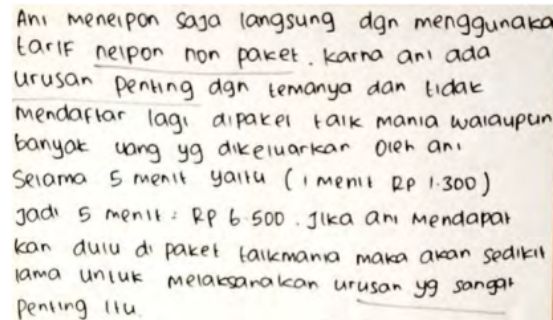 Ani menelpon saja langsung dgn menggunaka
tarif nelpon non paket. karna ani ada
urusan penting dgn temanya dan tidak
mendaftar lagi dipaket talk mania walaupun
banyak uang yg dikeluarkan oleh ani
selama 5 menit yaitu (1 menit Rp 1.300)
Jadi 5 menit = Rp 6.500. Jika ani mendapat
kan dulu di paket talkmania maka akan sedikit
lama untuk melaksanakan urusan yg sangat
penting itu.